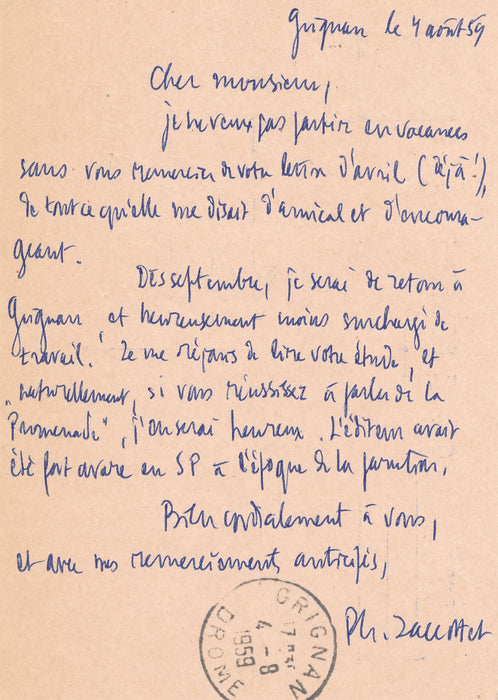 Grignan le 4 août 59
Cher monsieur,
je ne veux pas partir en vacances
sans vous remercier de votre lettre d'avril (déjà!),
de tout ce qu'elle me disait d'amical et d'encoura-
geant.
Dès septembre, je serai de retour à
Grignan, et heureusement moins surchargé de
travail. Je me réjouis de lire votre étude, et
naturellement, si vous réussissez à parler de la
"Promenade", j'en serai heureux. L'éditeur avait
été fort avare en SP à l'époque de la parution.
Bien cordialement à vous,
et avec mes remerciements anticipés,
Ph. Jaccottet
GRIGNAN
17 H
4 - 8
1959
DROME